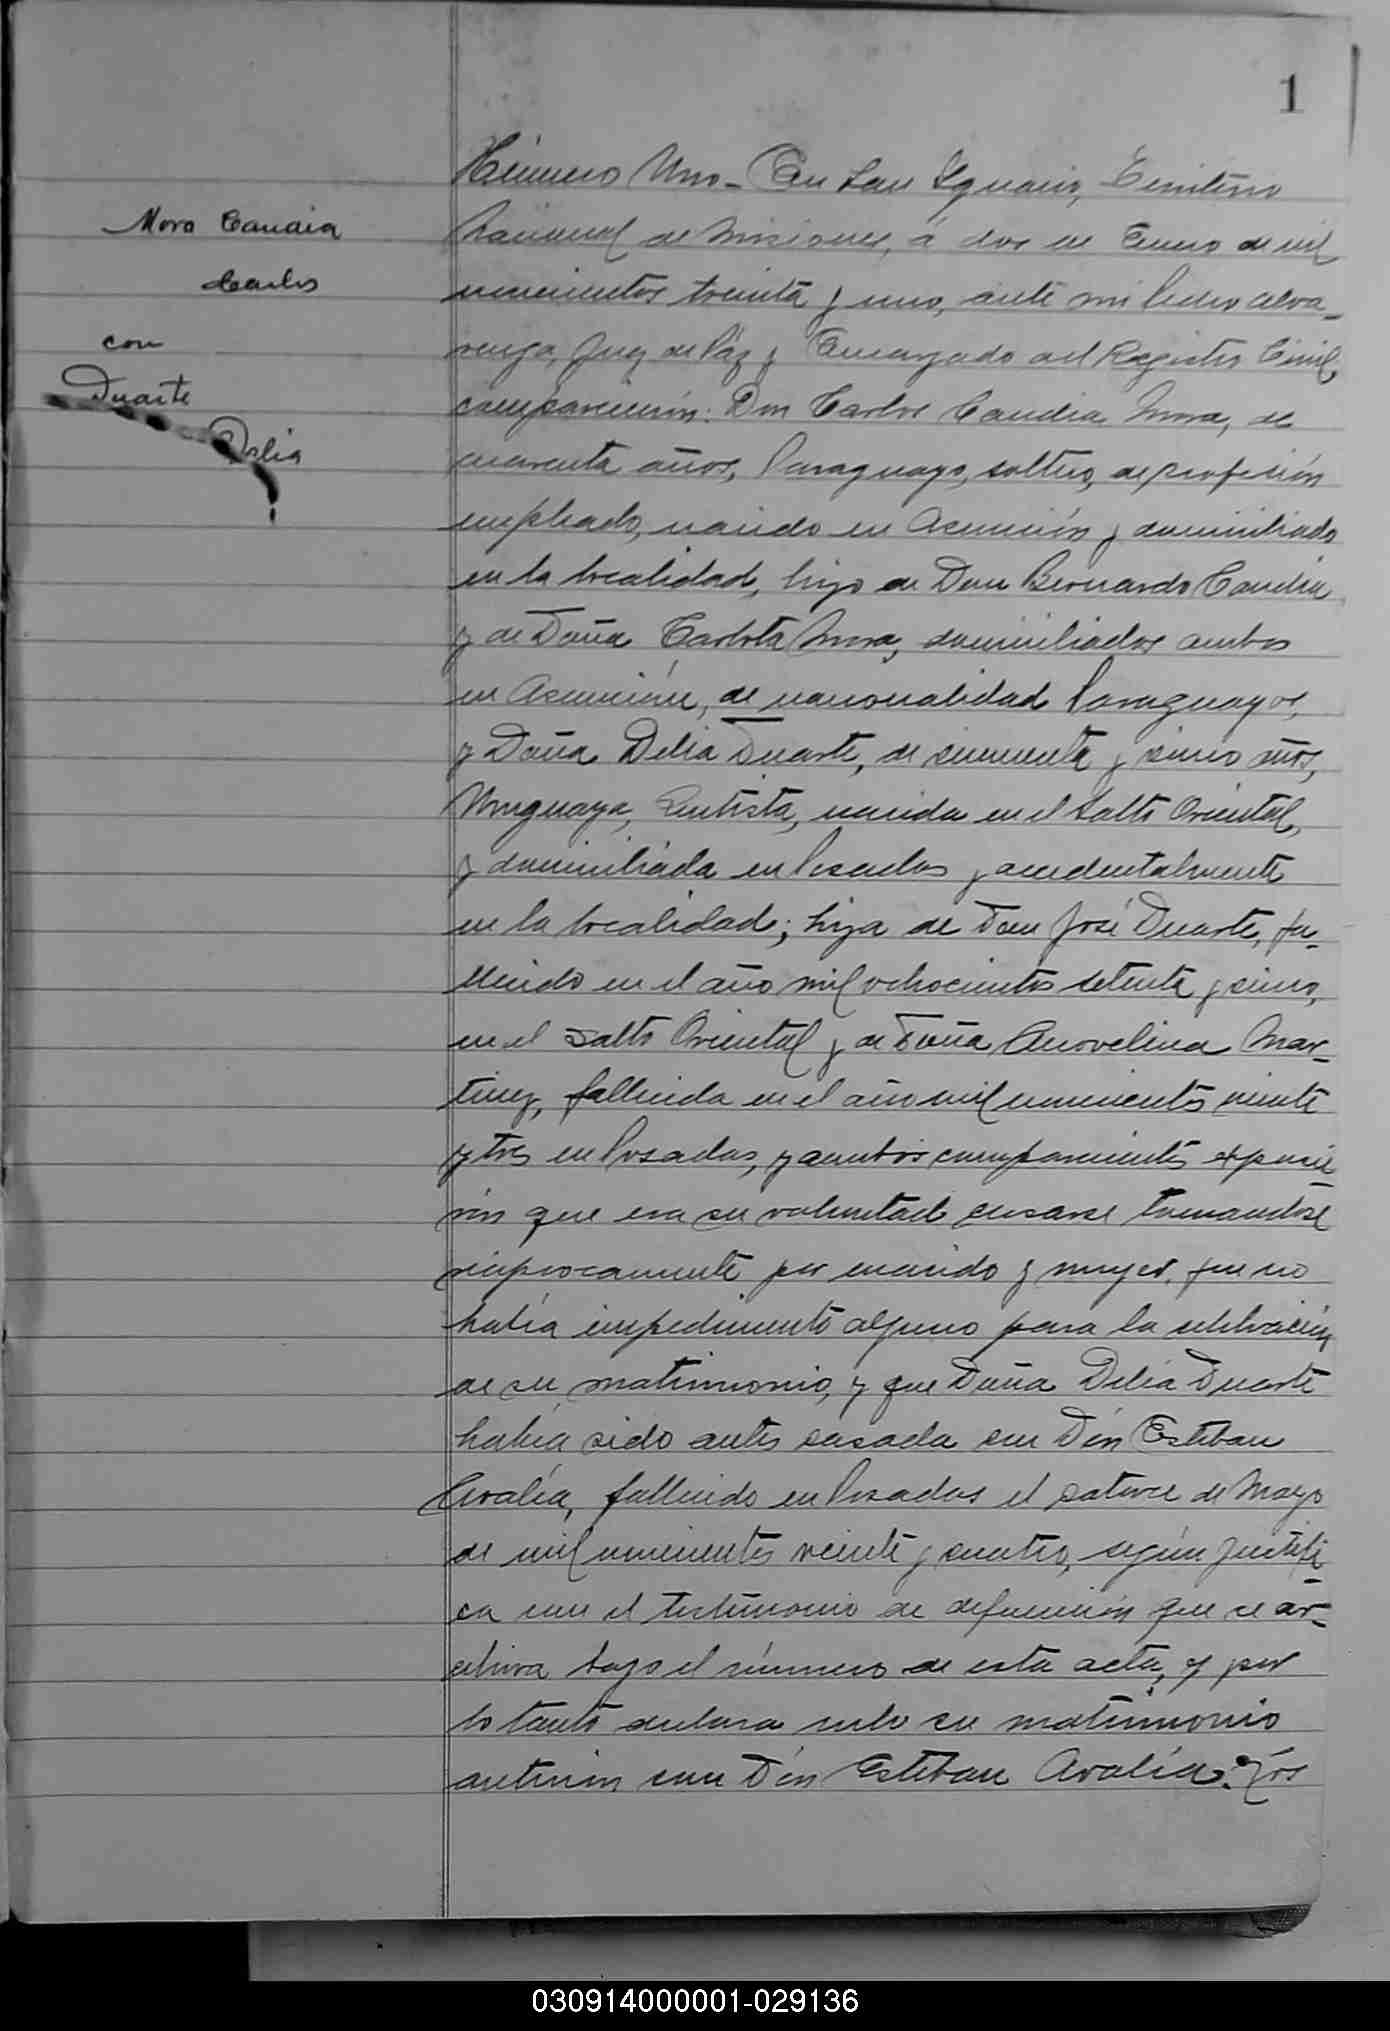 1
Número Uno - En San Ignacio, Territorio
Nacional de Misiones, á dos de Enero de mil
novecientos treinta y uno, ante mi Pedro Alva-
renga, Juez de Páz y Encargado del Registro Civil,
comparecieron: Don Carlos Candia Mora, de
cuarenta años, Paraguayo, soltero, de profesión
empleado, nacido en Asunción y domiciliado
en la localidad, hijo de Don Bernardo Candia
y de Doña Carlota Mora, domiciliados ambos
en Asunción, de nacionalidad Paraguayos,
y Doña Delia Duarte, de cincuenta y cinco años,
Uruguaya, Rentista, nacida en el Salto Oriental,
y domiciliada en Posadas y accidentalmente
en la localidad; hija de Don José Duarte, fa-
llecido en el año mil ochocientos setenta y cinco,
en el Salto Oriental y de Doña Anovelina Mar-
tinez, fallecida en el año mil novecientos veinte
y tres en Posadas, y ambos comparecientes expusie
ron que era su voluntad casarse tomandose
reciprocamente por marido y mujer, que no
había impedimento alguno para la celebración
de su matrimonio, y que Doña Delia Duarte
había sido antes casada con Dón Esteban
Avalía, fallecido en Posadas el catorce de Mayo
de mil novecientos veinte y cuatro, según justifi
ca con el testimonio de defunción que se ar-
chiva bajo el número de esta acta, y por
lo tanto declara nulo su matrimonio
anterior con Dón Esteban Avalía. Los
Mora Candia
Carlos
con
Duarte
Delia
030914000001-029136